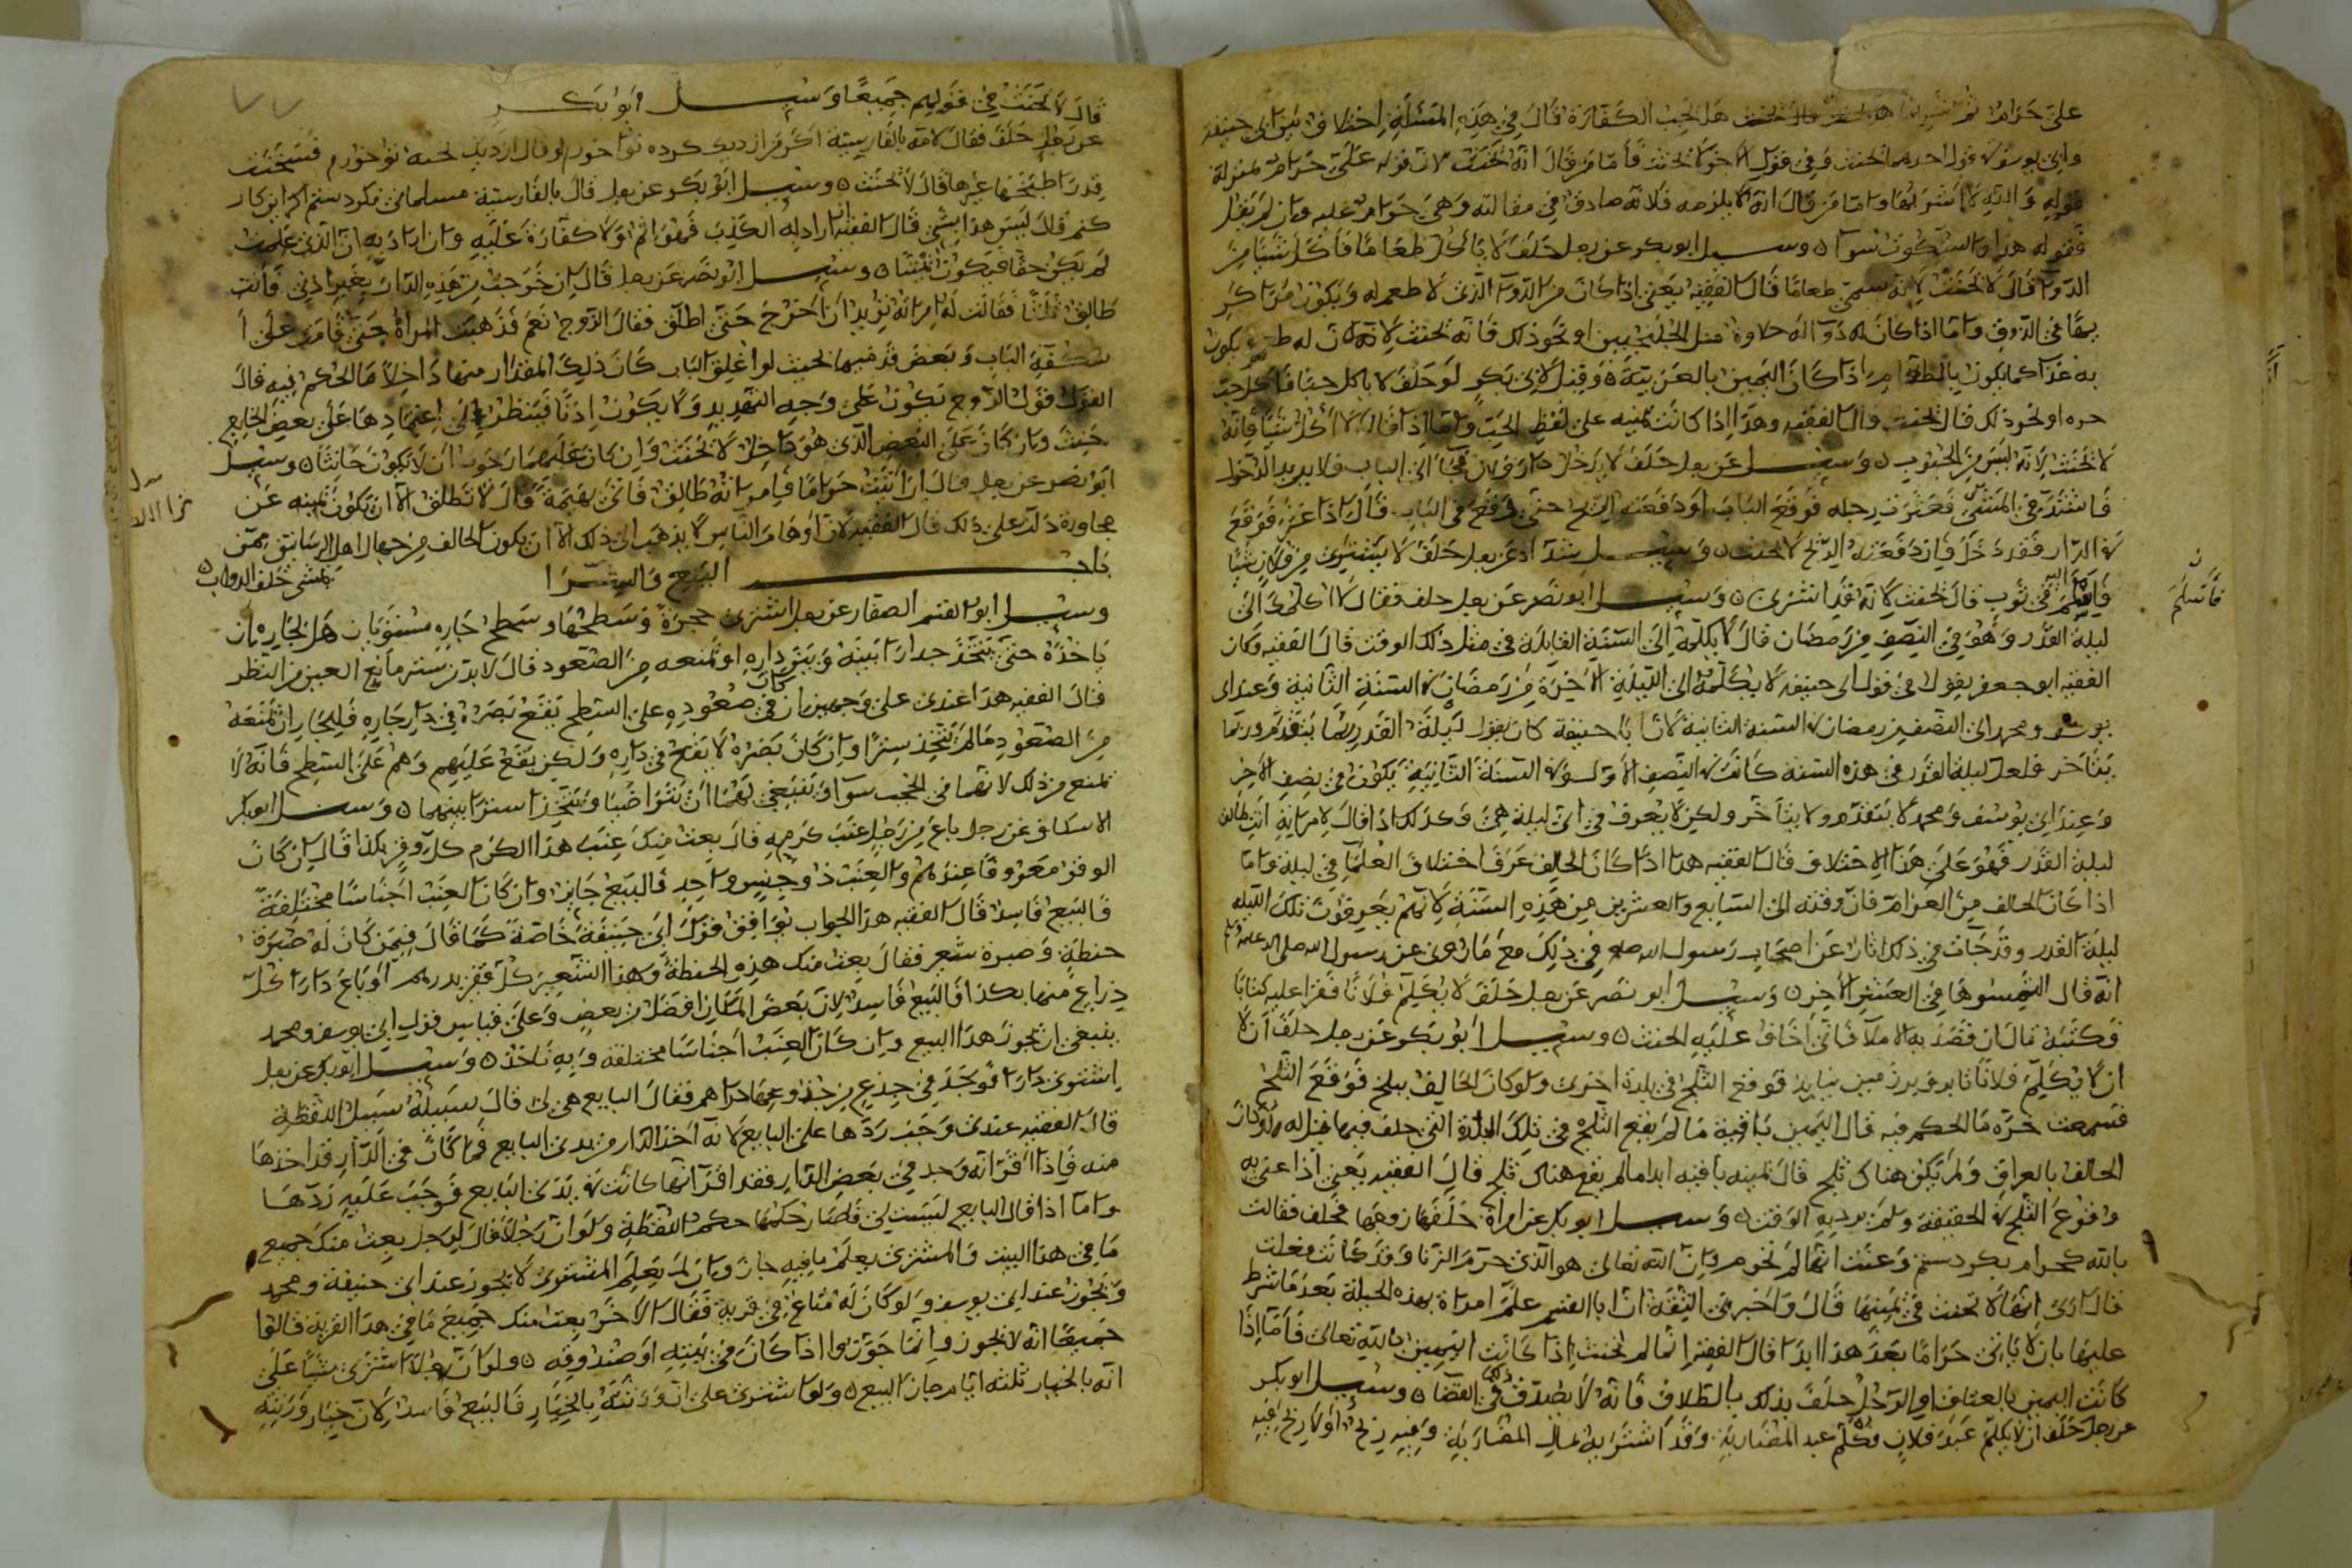 على حرام ثم شربها هل تجب الكفارة قال في هذه المسئلة اختلاف بين ابي حنيفة
وابي يوسف قول احدهما يحنث وفي قول الاخر لا يحنث فاما من قال انه يحنث لان قوله على حرام بمنزلة
قوله والله لا اشربها واما من قال انه لا يلزمه فلانه صادق في مقالته وهي حرام عليه وان لم يقل
فقوله هذا والسكوت سوا وسيل ابو بكر عن رجل حلف لا ياكل طعاما فاكل شيئا من
الدوا قال لا يحنث لانه سمى طعاما قال الفقيه يعني اذا كان من الدوا الذي لا طعم له ويكون مرا كريها
في الذوق واما اذا كان له دوا له حلاوة مثل الجلنجبين او نحو ذلك فانه يحنث لانه كان له طعم ويكون
به غذا كما يكون بالطعام اذا كان اليمين بالعربية وقيل لابي بكر لو حلف لا ياكل حبا فاكل حبة
او نحو ذلك قال يحنث قال الفقيه وهذا اذا كانت يمينه على لفظ الحب واما اذا قال لا اكل شيئا فانه
لا يحنث لانه ليس من الحبوب وسيل عن رجل حلف لا يدخل دار فلان فجا الى الباب فلا يريد الدخول
فاشتد في المشي فعثرت رجله فوقع الباب او دفعته الريح حتى وقع في الباب قال اذا عثر فوقع
في الدار فقد دخل فان دفعته الريح لا يحنث وسيل شداد عن رجل حلف لا يشتري من فلان شيئا
فاسلم اليه في ثوب قال يحنث لانه قد اشترى وسيل ابو نصر عن رجل حلف فقال لا اكلمك الى
ليلة القدر وهو في النصف من رمضان قال لا يكلمه الى السنة القابلة في مثل ذلك الوقت قال الفقيه وكان
الفقيه ابو جعفر يقول في قول ابي حنيفة لا يكلمه الى الليلة الاخرة من رمضان في السنة الثانية وعند ابي
يوسف ومحمد الى النصف من رمضان في السنة الثانية لان ابا حنيفة كان يقول ليلة القدر ربما يتقدم وربما
يتاخر فلعل ليلة القدر في هذه السنة كانت في النصف الاول وفي السنة الثانية يكون في نصف الاخر
وعند ابي يوسف ومحمد لا يتقدم ولا يتاخر ولكن لا يعرف في اي ليلة هي وكذلك اذا قال لامراته انت طالق
ليلة القدر فهو على هذا الاختلاف قال الفقيه هذا اذا كان الحالف عرف اختلاف العلما في ليلة واما
اذا كان الحالف من العوام فان وقته الى السابع والعشرين من هذه السنة لانهم يعرفون تلك الليلة
ليلة القدر وقد جات في ذلك اثار عن اصحاب رسول الله صلع في ذلك مع ما روي عن رسول الله صلى الله عليه وسلم
انه قال التمسوها في العشر الاخر وسيل ابو نصر عن رجل حلف لا يكلم فلانا فقرا عليه كتابا
فكتبه قال ان قصد به الاملا فاني اخاف عليه الحنث وسيل ابو بكر عن رجل حلف ان لا
ان لا يكلم فلانا تا برف برزمين بيايد فوقع الثلج في بلدة اخرى ولو كان الحالف ببلخ فوقع الثلج
ما الحكم فيه قال اليمين باقية ما لم يقع الثلج في تلك البلدة التي حلف فيها قيل له ولو كان
الحالف بالعراق ولم يكن هناك ثلج قال يمينه باقيه ابدا ما لم يقع هناك ثلج قال الفقيه يعني اذا عنى به
وقوع الثلج في الحقيقة ولم يرد به الوقت وسيل ابو بكر عن امراة حلفها زوجها فحلف فقالت
بالله كحرام نكردستم وعنت انها لم تحرم وان الله تعالى هو الذي حرم الزنا وقد كانت فعلت
قال ارى انها لا تحنث في يمينها قال واخبرني الثقة ان ابا القسم علم امراة بهذه الحيلة بعد ما شرط
عليها بان لا ياتي حراما بعد هذا ابدا قال الفقيه انما لم يحنث اذا كانت اليمين بالله تعالى فاما اذا
كانت اليمين بالعتاق او الرجل حلف بذلك بالطلاق فانه لا يصدق في القضا وسيل ابو بكر
عن رجل حلف ان لا يكلم عبد فلان فكلم عبد المضاربة وقد اشتراه بمال المضاربة وفيه ربح او لا ربح فيه
فاسلم
قال لا يحنث في قولهم جميعا وسيل ابو بكر
عن رجل حلف فقال لامه بالفارسية اكر من از ديك كرده تو خورم او قال از ديك پخته تو خورم فسخنت
قدرا طبخها غيرها قال لا يحنث وسيل ابو بكر عن رجل قال بالفارسية مسلماني نكردستم اكر اين كار
كنم قال ليس هذا بشي قال الفقيه ان اراد به الكذب فهو اثم ولا كفارة عليه وان اراد به ان الذي عملت
لم يكن حقا فيكون يمينا وسيل ابو نصر عن رجل قال ان خرجت من هذه الدار بغير اذني فانت
طالق ثلثا فقالت له امراته تريد ان اخرج حتى اطلق فقال الزوج نعم فذهبت المراة حتى قامت على
اسكفة الباب وبعض قدميها بحيث لو اغلق الباب كان ذلك المقدار منها داخلا ما الحكم فيه قال
القول قول الزوج يكون على وجه التهديد ولا يكون اذنا فينظر الى اعتمادها على بعض الخارج
حنث وان كان على البعض الذي هو داخل لا يحنث وان كان عليهما رجوت ان لا يكون حانثا وسيل
ابو نصر عن رجل قال ان اتيت حراما فامراته طالق فاتى بهيمة قال لا تطلق الا ان تكون يمينه عن
مجاورة دلت على ذلك قال الفقيه لان اوهام الناس لا يذهب الى ذلك الا ان يكون الحالف من جهال اهل الرساتيق ممن
يمشي خلف الدواب
باب البيع والشرا
وسيل ابو القسم الصفار عن رجل اشترى حجرة وسطحها وسطح جاره مستويان هل لجاره ان
ياخذه حتى يتخذ جدارا بينه وبين داره او يمنعه من الصعود قال لا بد من سترة مانع العين من النظر
قال الفقيه هذا عندي على وجهين ان كان في صعوده على السطح يقع بصره في دار جاره فلجاره ان يمنعه
من الصعود ما لم يتخذ سترا وان كان بصره لا يقع في داره ولكن يقع عليهم وهم على السطح فانه لا
يمنع من ذلك لانهما في الحجب سوا وينبغي لهما ان يتواضبا ويتخذا سترا بينهما وسيل ابو بكر
الاسكاف عن رجل باع من رجل عنب كرمه قال بعت منك عنب هذا الكرم كل وقر بكذا قال ان كان
الوقر معروفا عندهم والعنب ذو جنس واحد فالبيع جايز وان كان العنب اجناسا مختلفة
فالبيع فاسد قال الفقيه هذا الجواب يوافق قول ابي حنيفة خاصة كما قال فيمن كان له صبرة
حنطة وصبرة شعير فقال بعت منك هذه الحنطة وهذا الشعير كل قفيز بدرهم او باع دارا كل
ذراع منها بكذا فالبيع فاسد لان بعض المكان افضل من بعض وعلى قياس قول ابي يوسف ومحمد
ينبغي ان يجوز هذا البيع وان كان العنب اجناسا مختلفة وبه ناخذ وسيل ابو بكر عن رجل
اشترى دارا فوجد في جذع من جذوعها دراهم فقال البايع هي لي قال سبيله سبيل اللقطة
قال الفقيه عندي وجب ردها على البايع لانه اخذ الدار من يدي البايع فما كان في الدار قد اخذها
منه فاذا اقر انه وجد في بعض الدار فقد اقر انها كانت في يدي البايع فوجب عليه ردها
واما اذا قال البايع ليست لي فلصار حكمها حكم اللقطة ولو ان رجلا قال لرجل بعت منك جميع
ما في هذا البيت والمشتري يعلم ما فيه جاز وان لم يعلم المشتري لا يجوز عند ابي حنيفة ومحمد
ويجوز عند ابي يوسف ولو كان له متاع في قرية فقال لاخر بعت منك جميع ما في هذا القرية قالوا
جميعا انه لا يجوز وانما جوزوا اذا كان في بيته او صندوقه ولو ان رجلا اشترى شيئا على
انه بالخيار ثلثة ايام جاز البيع ولو اشترى على ان ورثته بالخيار فالبيع فاسد لان خيار ورثته